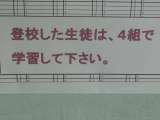 登校した生徒は、4組で
学習して下さい。